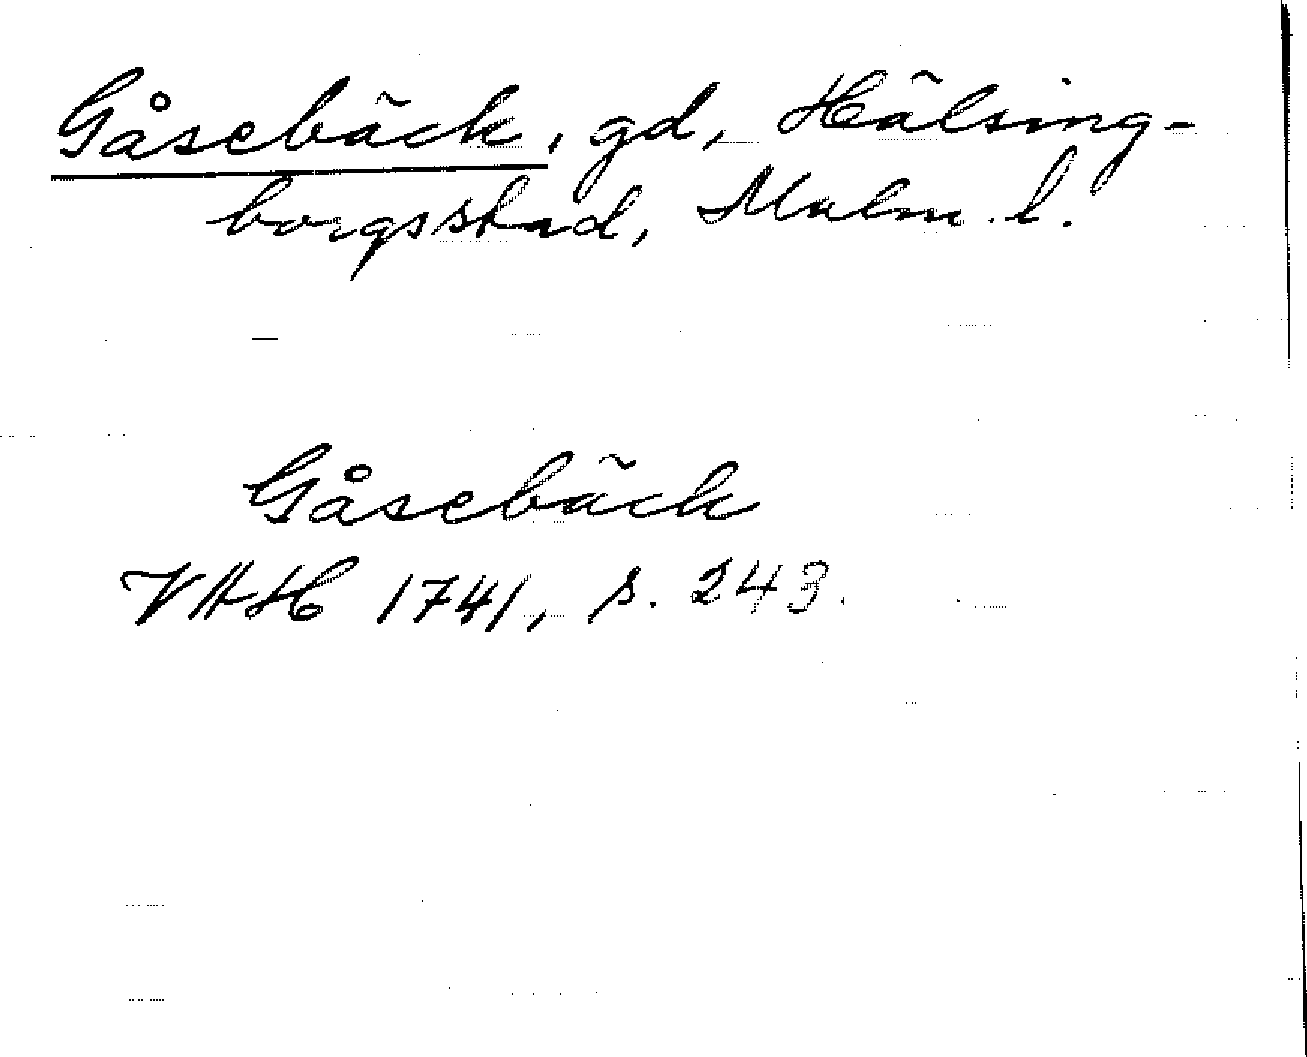 Gåsebäck, gd, Hälsing-
borgsstad, Malm. l.
Gåsebäck
VAH 1741, s. 243.